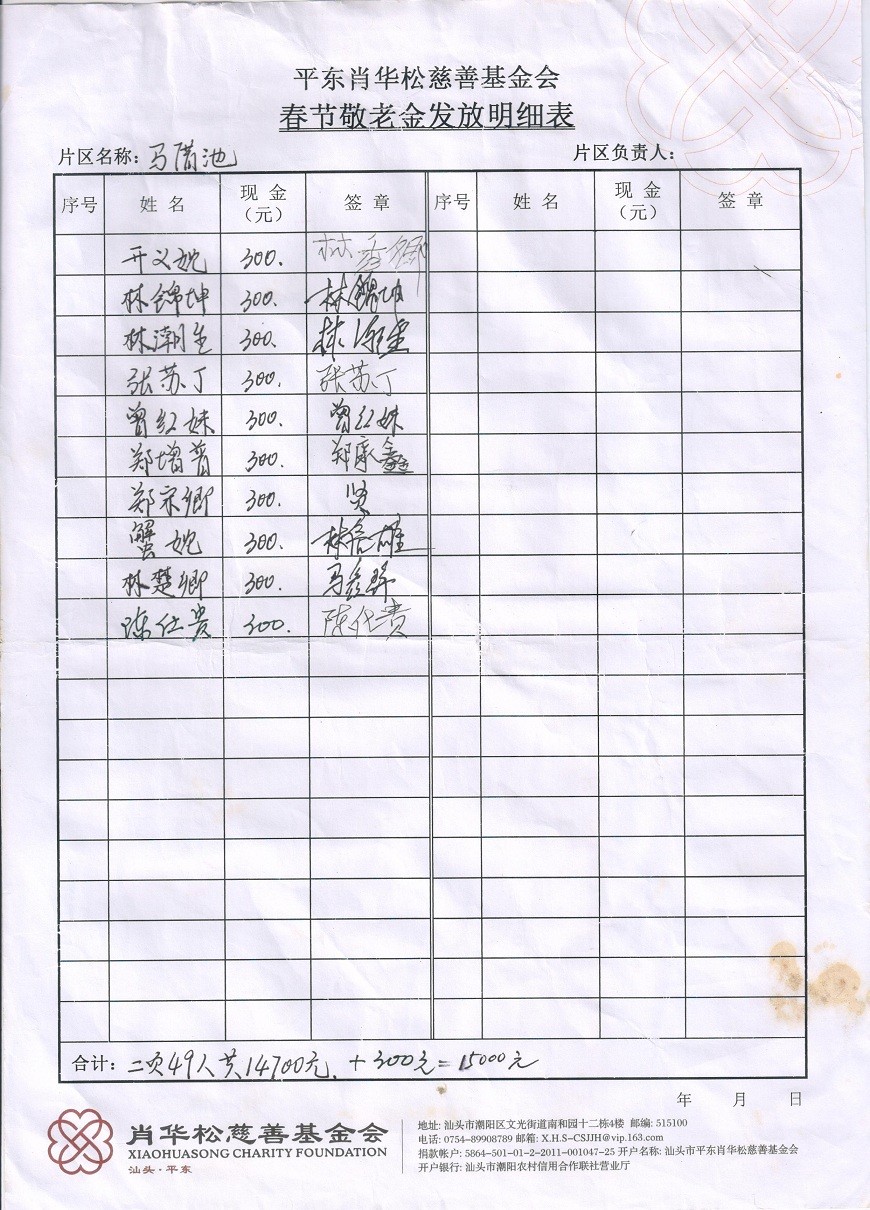 平东肖华松慈善基金会
春节敬老金发放明细表
片区名称: 马 池 片区负责人:
序号 姓名 现金(元) 签章 序号 姓名 现金(元) 签章
开义婉 300. 林香卿
林锦坤 300. 林锦坤
林潮生 300. 林潮生
张苏丁 300. 张苏丁
曾红妹 300. 曾红妹
郑增普 300. 郑承鑫
郑宋卿 300. 贤
蟹婉 300. 林 雄
林楚卿 300. 马
陈仕贵 300. 陈仕贵
合计: 二页49人共14700元. + 300元 = 15000元
年 月 日
肖华松慈善基金会
XIAOHUASONG CHARITY FOUNDATION
汕头·平东
地址: 汕头市潮阳区文光街道南和园十二栋4楼 邮编: 515100
电话: 0754-89908789 邮箱: X.H.S-CSJJH@vip.163.com
捐款帐户: 5864-501-01-2-2011-001047-25 开户名称: 汕头市平东肖华松慈善基金会
开户银行: 汕头市潮阳农村信用合作联社营业厅